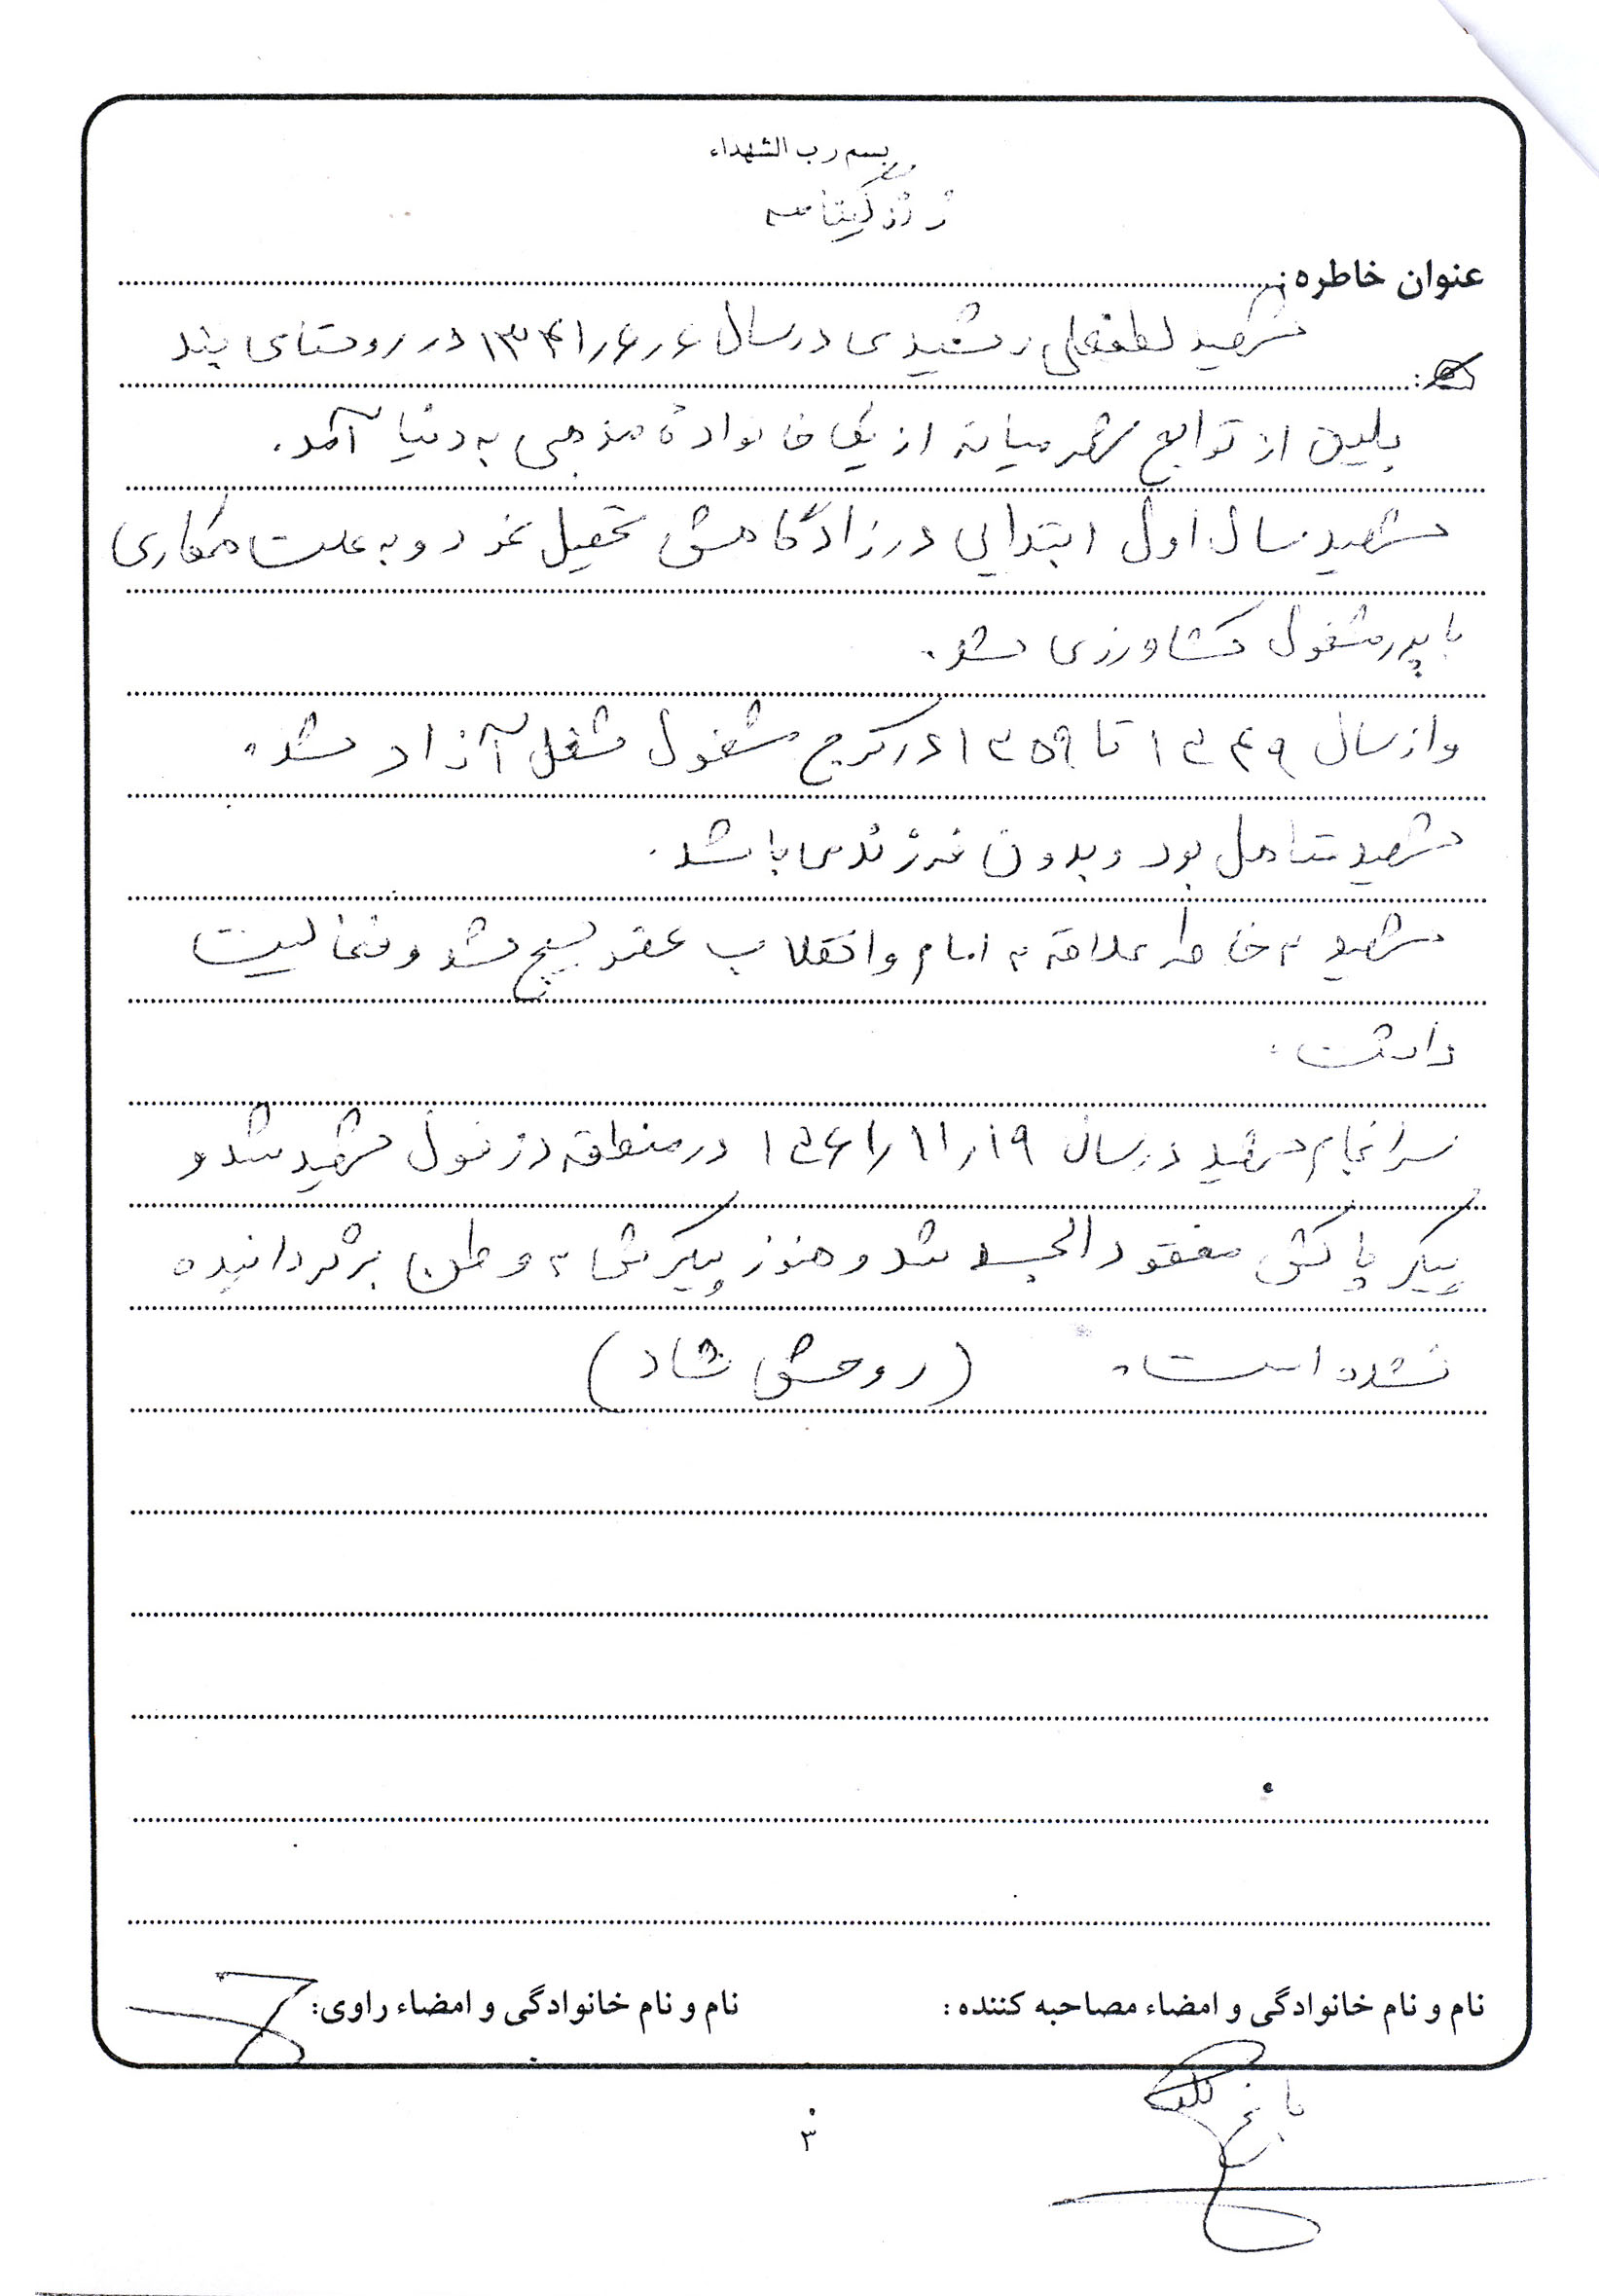 بسم رب الشهداء
زندگینامه
عنوان خاطره:
شهید لطفعلی رشیدی در سال ۱۳۴۱/۶/۶ در روستای بند
بلین از توابع شهر میانه از یک خانواده مذهبی به دنیا آمد.
شهید سال اول ابتدایی در زادگاهش تحصیل نمود و به علت همکاری
با پدر مشغول کشاورزی شد.
و از سال ۱۳۴۹ تا ۱۳۵۹ در کرج مشغول شغل آزاد شد.
شهید متاهل بود و بدون فرزند می باشد.
شهید به خاطر علاقه به امام و انقلاب عضو بسیج شد و فعالیت
داشت.
سرانجام شهید در سال ۱۳۶۱/۱۱/۱۹ در منطقه دزفول شهید شد و
پیکر پاکش مفقود الجسد شد و هنوز پیکرش به وطن برگردانیده
نشده است. (روحش شاد)
نام و نام خانوادگی و امضاء مصاحبه کننده: نام و نام خانوادگی و امضاء راوی:
۳